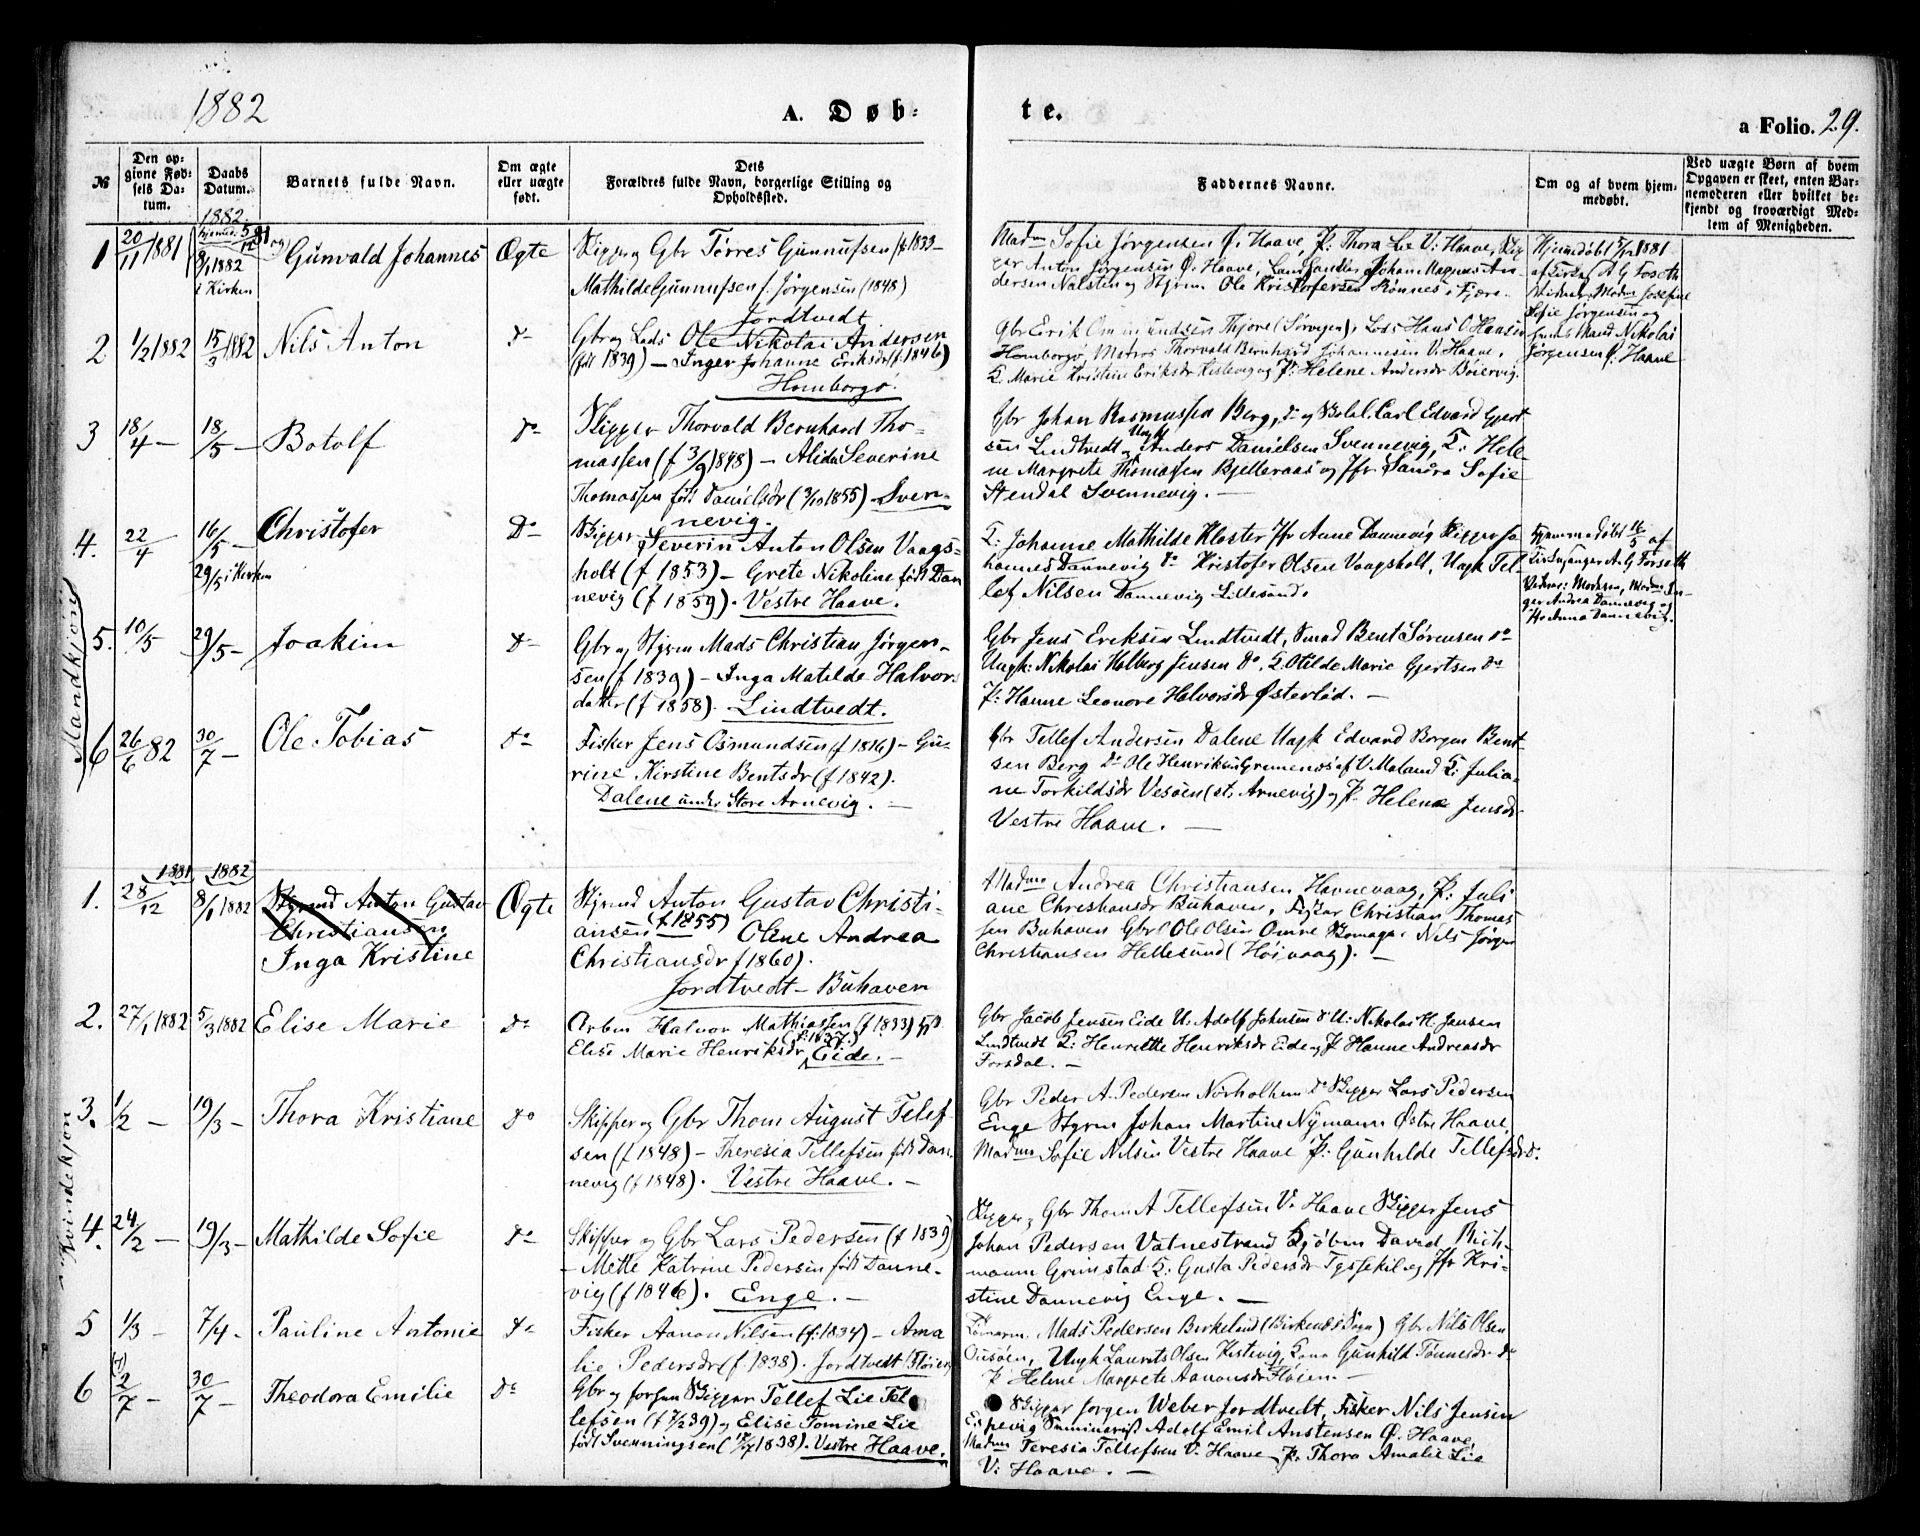 1882
A. Døb-
te.
a Folio. 29.
№
Den op-
givne Fød-
sels Da-
tum.
Daabs
Datum.
Barnets fulde Navn.
Om ægte
eller uægte
født.
Dets
Forældres fulde Navn, borgerlige Stilling og
Opholdssted.
Faddernes Navne.
Om og af hvem hjem-
medøbt.
Ved uægte Børn af hvem
Opgaven er skeet, enten Bar-
nemoderen eller hvilket be-
kjendt og troværdigt Med-
lem af Menigheden.
Mandkjøn
1882.
1 20/11 1881
8/1 1882
i Kirken
Gunvald Johannes
Ægte
Skipper og Gbr Tørres Gunnufsen
Mathilde Gunnufsen f. Jørgensen (1848)
Jordtvedt
Madm Sofie Jørgensen Ø. Haave, P. Thora Lie V. Haave, Skip
per Anton Jørgensen Ø. Haave, Johan Magnus An-
dersen Ole Kristofersen Rønnes i Fjære
Hjemmedøbt 5/12 1881
af A G Foseth
Madm Josefine
Sofie Jørgensen og
Nikolai
Jørgensen Ø. Haave
2 1/2 1882 15/3 1882 Nils Anton
Do
Gbr og Lods Ole Nikolai Andersen
(født 1839) – Inger Johanne Eriksdr (f. 1846)
Homborgø.
Gbr Erik Ommundsen Thjøre (Sørvigen), Los Hans O Hansen
Homborgø, Matros Thorvald Bernhard Johannesen V. Haave,
K. Marie Kristine Eriksdr Kistevig og P. Helene Andersdr Beiervig.
3 18/4 – 18/5 – Botolf
Do
Skipper Thorvald Bernhard Tho-
massen (f 3/9 1848) – Alida Severine
Thomassen født Danielsdr (3/10 1855) – Sven-
nevig.
Gbr Johan Rasmussen Berg, Do og Carl Edvard Gjert
sen Lindtvedt Ungk Anders Danielsen Svennevig, K. Hele
ne Margrete Thomassen Bjelleraas og Jfr Sandra Sofie
Stendal Svennevig. –
4. 22/4 16/5 – Christofer
29/5 i Kirken
Do
Skipper Severin Anton Olsen Vaags-
holt (f 1853) – Grete Nikoline født Dan
nevig (f 1859). Vestre Haave.
K. Johanne Mathilde Kloster Jfr Anne Dannevig Skipper Jo
hannes Dannevig Do Kristofer Olsen Vaagsholt, Ungk Tel-
lef Nilsen Dannevig Lillesand.
Hjemmedøbt 16/5 af
Kirkesanger A. G Forseth
Vidner: Moderen, Madm In-
ger Andrea Dannevig og
Anna Dannevig.
5. 10/5 29/5 – Joakim
Do
Gbr og Styrm Mads Christian Jørgen-
sen (f 1839) – Inga Matilde Halvors
datter (f 1858). Lindtvedt.
Gbr Jens Eriksen Lindtvedt, Smed Bent Sørensen do
Ungk: Nikolai Holberg Jensen Do, K. Otilde Marie Gjertsen Do
P. Hanne Leonore Halvorsdr Østerlid. –
6 26/6 82 30/7 – Ole Tobias
Do
Fisker Jens Osmundsen (f 1816) – Gu-
rine Kirstine Bentsdr (f 1842).
Dalene under Store Arnevig. –
Gbr Tellef Andersen Dalene Ungk Edvard Borgen Bent-
sen Berg Do Ole Henriksen Grimenes af V. Moland K. Julia-
ne Torkildsdr Vesøen (st. Arnevig) og P. Helene Jensdr
Vestre Haave. –
Kvindekjøn
1881 1882
1. 28/12 8/1 1882
Styrmd Anton Gustav
Christiansen
Inga Kristine
Ægte
Styrmd Anton Gustav Christi-
ansen (f 1855) Olene Andrea
Christiansdr f 1860).
Jordtvedt – Buhaven
Madme Andrea Christiansen Havnevaag, P. Juli
ane Christiansdr Buhaven, Fisker Christian Thomas
sen Buhaven Gbr Ole Olsen Omre Nils Jørgen
Christiansen Hellesund (Høivaag). –
2. 27/1 1882 5/3 1882 Elise Marie
Do
Arbm Halvor Mathiassen (f 1833) og
Elise Marie Henriksdr (f. 1837.) Eide. –
Gbr Jacob Jensen Eide U. Adolf Johnsen Do U. Nikolai H. Jansen
Lindtvedt K. Henriette Henriksdr Eide og P Hanne Andreasdr
Forsdal. –
3. 1/2 – 19/3 – Thora Kristiane
Do
Skipper og Gbr Thom August Tellef
sen (f 1848) – Theresia Tellefsen født Dan
nevig (f 1848). Vestre Haave. –
Gbr Peder A. Pedersen Nørholhem Do Skipper Lars Pedersen
Enge Styrm Johan Martine Nymann Østre Haave,
Madme Sofie Nilsen Vestre Haave P. Gunhilde Tellefsdr Do.
4. 24/2 – 19/3 – Mathilde Sofie
Do
Skipper og Gbr Lars Pedersen (f 1839)
– Mette Katrine Pedersen født Danne-
vig (f 1846). Enge. –
Skipper og Gbr Thom A Tellefsen V. Haave Skipper Jens
Johan Pedersen Vatnestrand Kjøbm David Rich-
mann Grimstad K. Gusta Pedersdr Tyssekil og Jfr Kri-
stine Dannevig Enge. –
5 1/3 – 7/4 – Pauline Antonie
Do
Fisker Aanon Nilsen (f. 1834) – Ama
lie Pedersdr (f. 1838). Jordtvedt (Fløien)
Mads Pedersen Birkeland (Birkenes Sogn) Gbr Nils Olsen
Ousøen, Ungk Laurits Olsen Kistevig, Kona Gunhild Tønnesdr Do
P Helene Margrete Aanonsdr Fløien. –
6 2/7 – 30/7 – Theodora Emilie
Do
Gbr og forhen Skipper Tellef Lie Tel
lefsen (f 7/2 39) og Elise Tomine Lie
født Svenningsen (1838). Vestre Haave.
Skipper Jørgen Weber Jordtvedt, Fisker Nils Jensen
Espevig Seminarist Adolf Emil Anstensen Ø. Haave,
Madm Teresia Tellefsen V. Haave P. Thora Amalie Lie
V. Haave. –